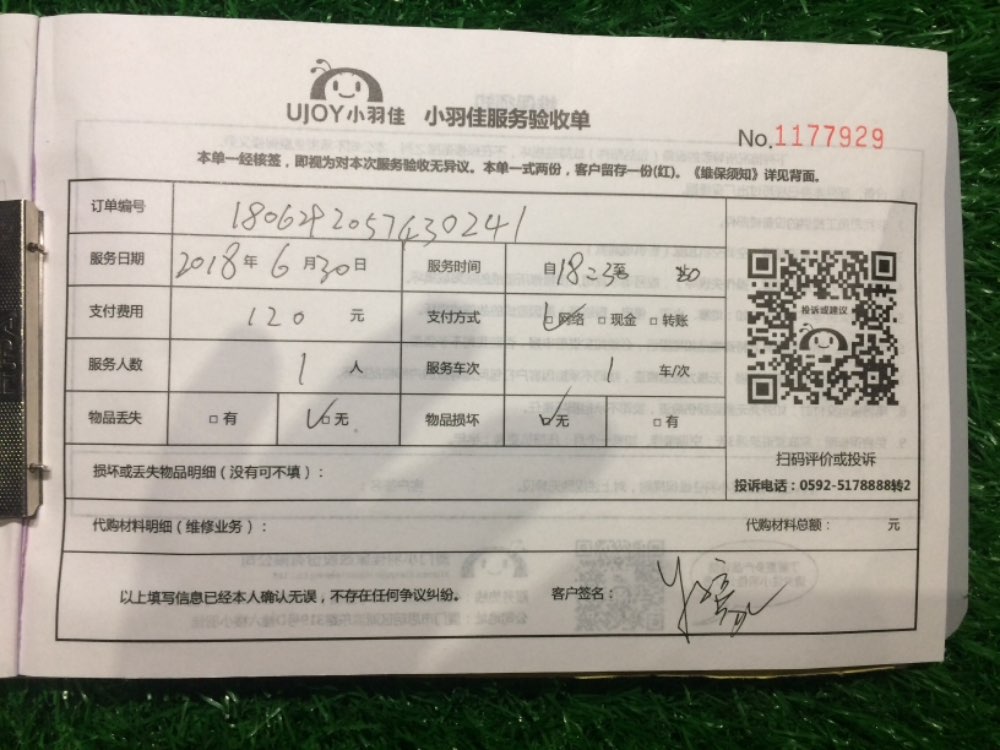 UJOY小羽佳 小羽佳服务验收单
No.1177929
本单一经核签，即视为对本次服务验收无异议。本单一式两份，客户留存一份(红)。《维保须知》详见背面。
订单编号
服务日期 2018年6月30日 服务时间 自18:23至
支付费用 120 元 支付方式 □网络 □现金 □转账
投诉或建议
服务人数 1 人 服务车次 1 车/次
物品丢失 □有 □无 物品损坏 □无 □有
扫码评价或投诉
损坏或丢失物品明细（没有可不填）：
投诉电话：0592-5178888转2
代购材料明细（维修业务）： 代购材料总额： 元
以上填写信息已经本人确认无误，不存在任何争议纠纷。 客户签名：